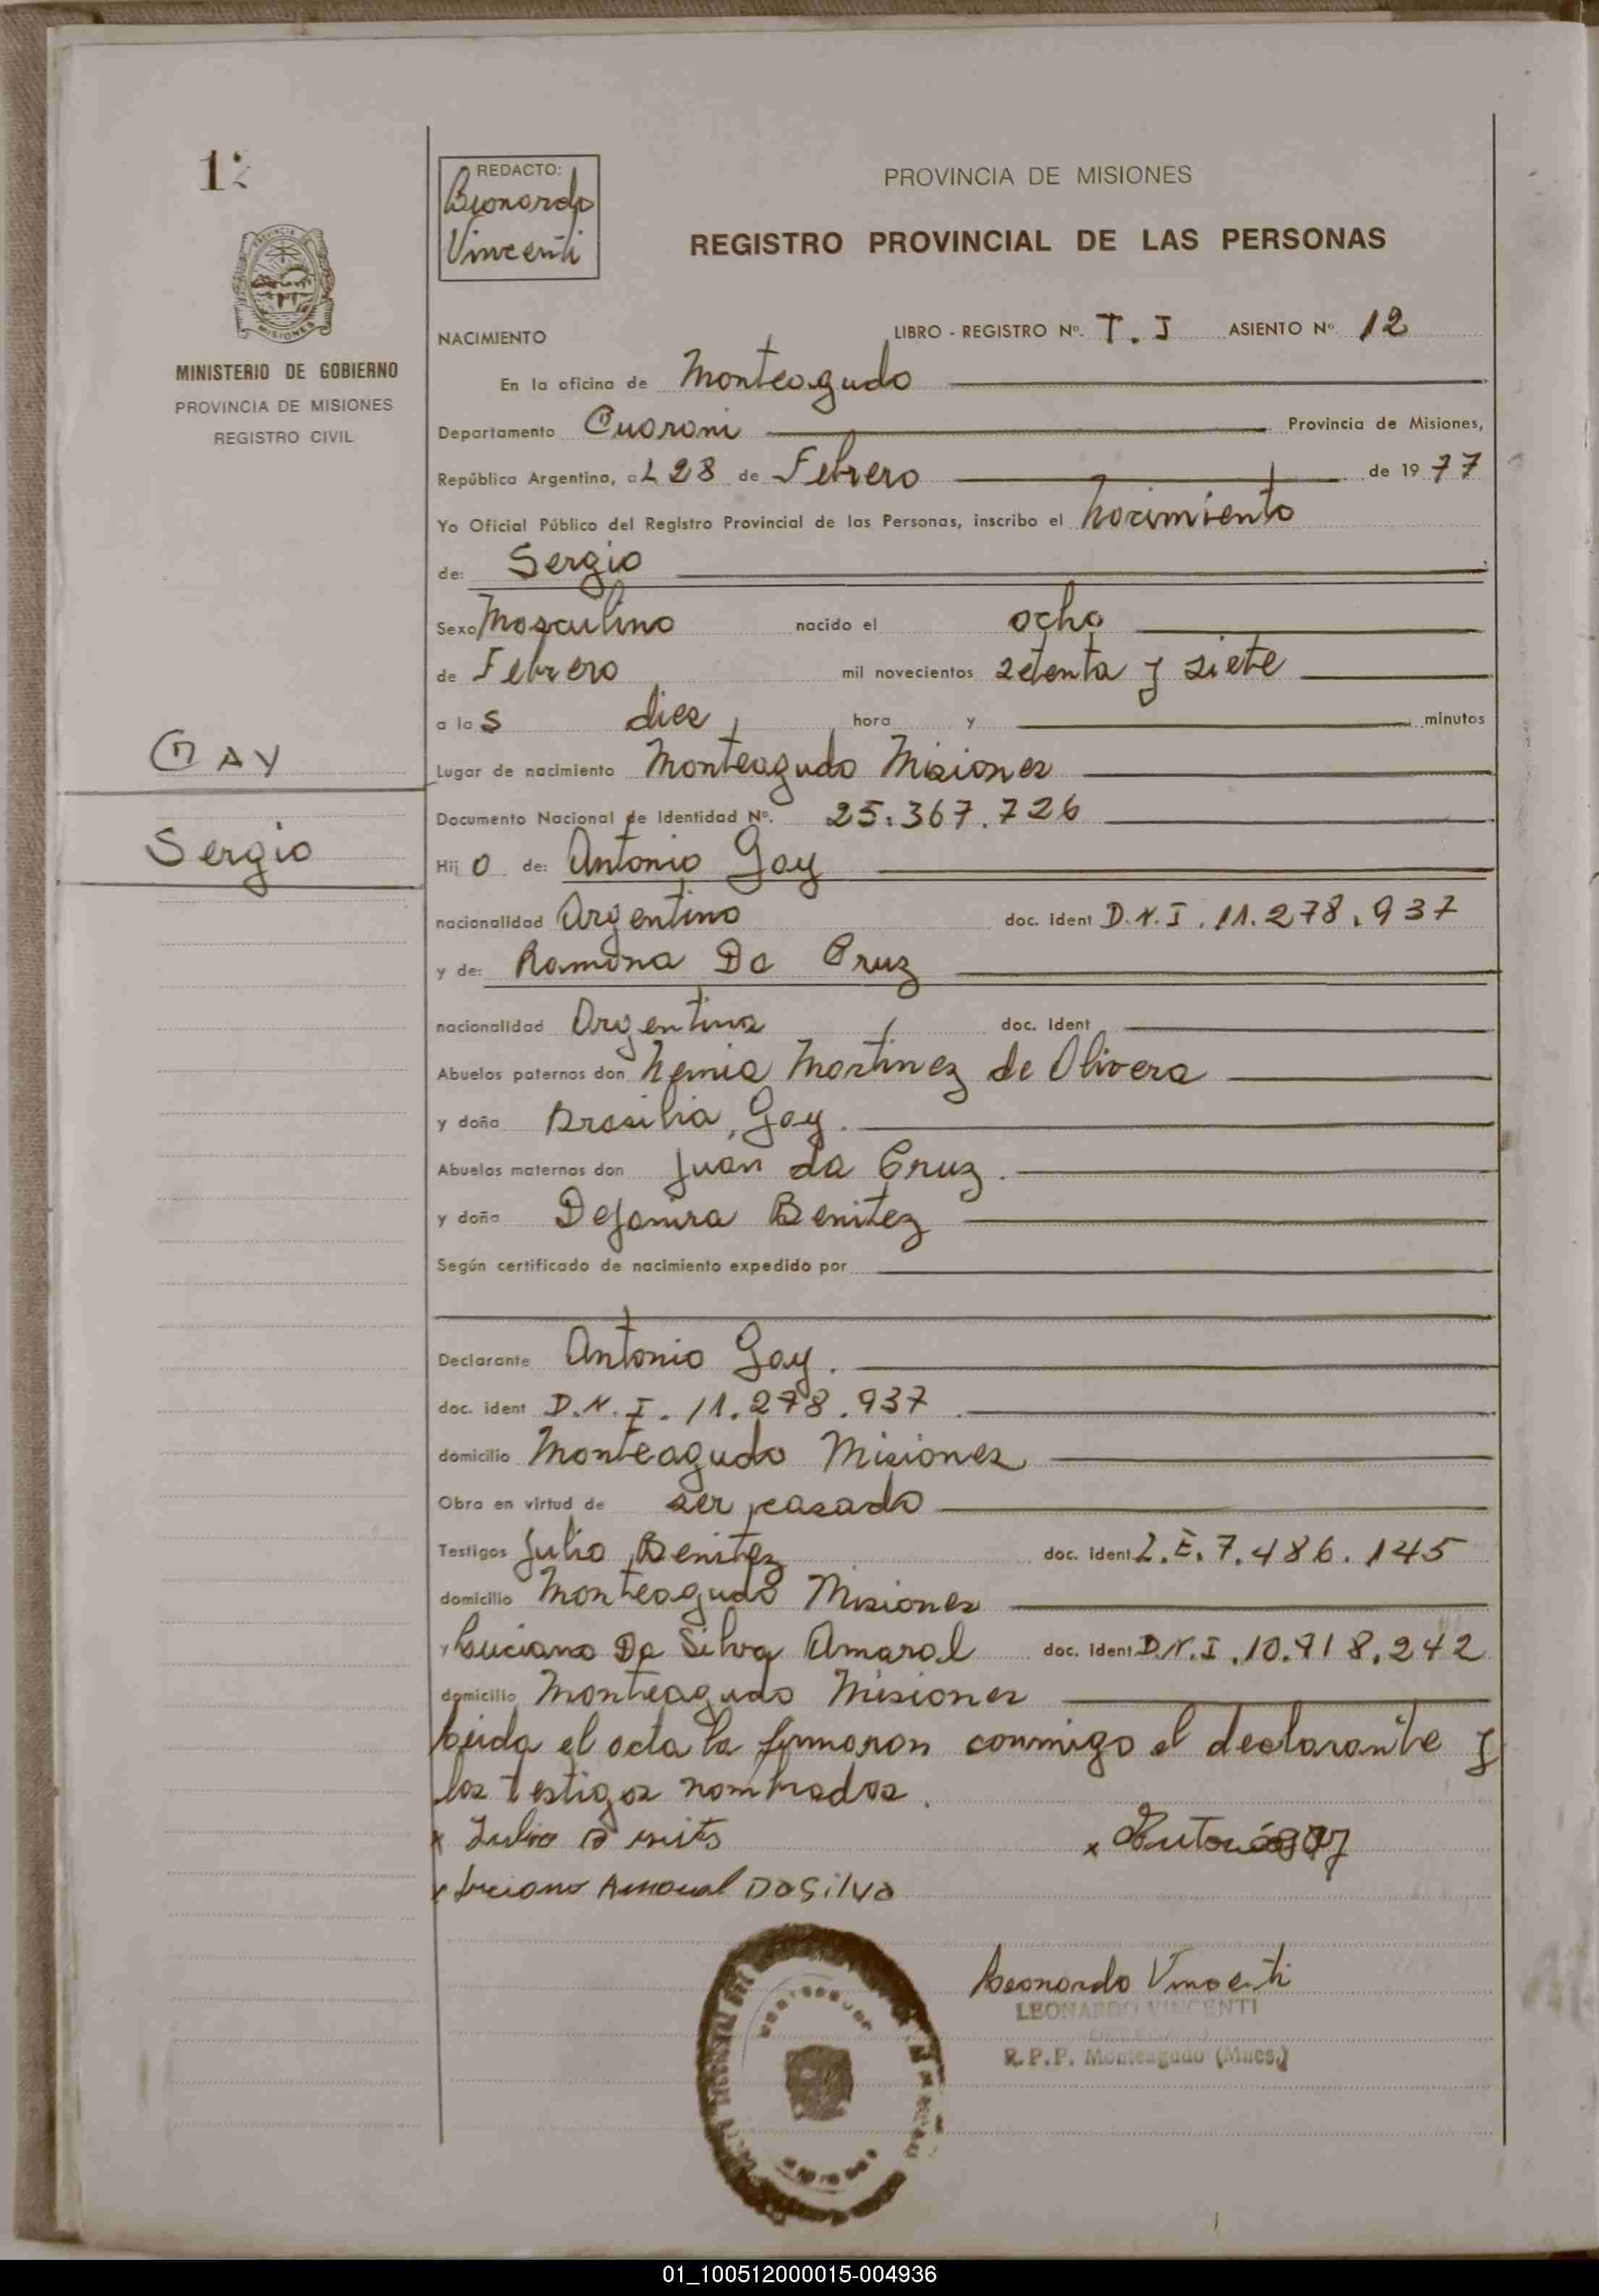 12
REDACTO:
Leonardo
Vincenti
PROVINCIA DE MISIONES
REGISTRO PROVINCIAL DE LAS PERSONAS
PROVINCIA DE
MISIONES
MINISTERIO DE GOBIERNO
PROVINCIA DE MISIONES
REGISTRO CIVIL
NACIMIENTO LIBRO - REGISTRO Nº. T. I ASIENTO Nº 12
En la oficina de Monteagudo
Departamento Guarani Provincia de Misiones,
República Argentina, a L 28 de Febrero de 19 77
Yo Oficial Público del Registro Provincial de las Personas, inscribo el nacimiento
de: Sergio
Sexo Masculino nacido el ocho
de Febrero mil novecientos setenta y siete
a la s diez hora y minutos
GAY
Lugar de nacimiento Monteagudo Misiones
Documento Nacional de Identidad Nº. 25.367.726
Sergio
Hij o de: Antonio Gay
nacionalidad Argentino doc. ident D.N.I. 11.278.937
y de: Ramona Da Cruz
nacionalidad Argentina doc. ident
Abuelos paternos don Martinez de Olivera
y doña Brasilia Gay.
Abuelos maternos don Juan da Cruz.
y doña Dejanira Benitez
Según certificado de nacimiento expedido por
Declarante Antonio Gay.
doc. ident D.N.I. 11.278.937
domicilio Monteagudo Misiones
Obra en virtud de ser casado
Testigos Julio Benitez doc. ident L.E. 7.486.145
domicilio Monteagudo Misiones
y Luciano Da Silva Amaral doc. ident D.N.I. 10.918.242
domicilio Monteagudo Misiones
Leida el acta la firmaron conmigo el declarante y
los testigos nombrados.
x Julio x Antonio gay
x Luciano Amaral DaSilva
Leonardo Vincenti
LEONARDO VINCENTI
R.P.P. Monteagudo (Mnes.)
01_100512000015-004936